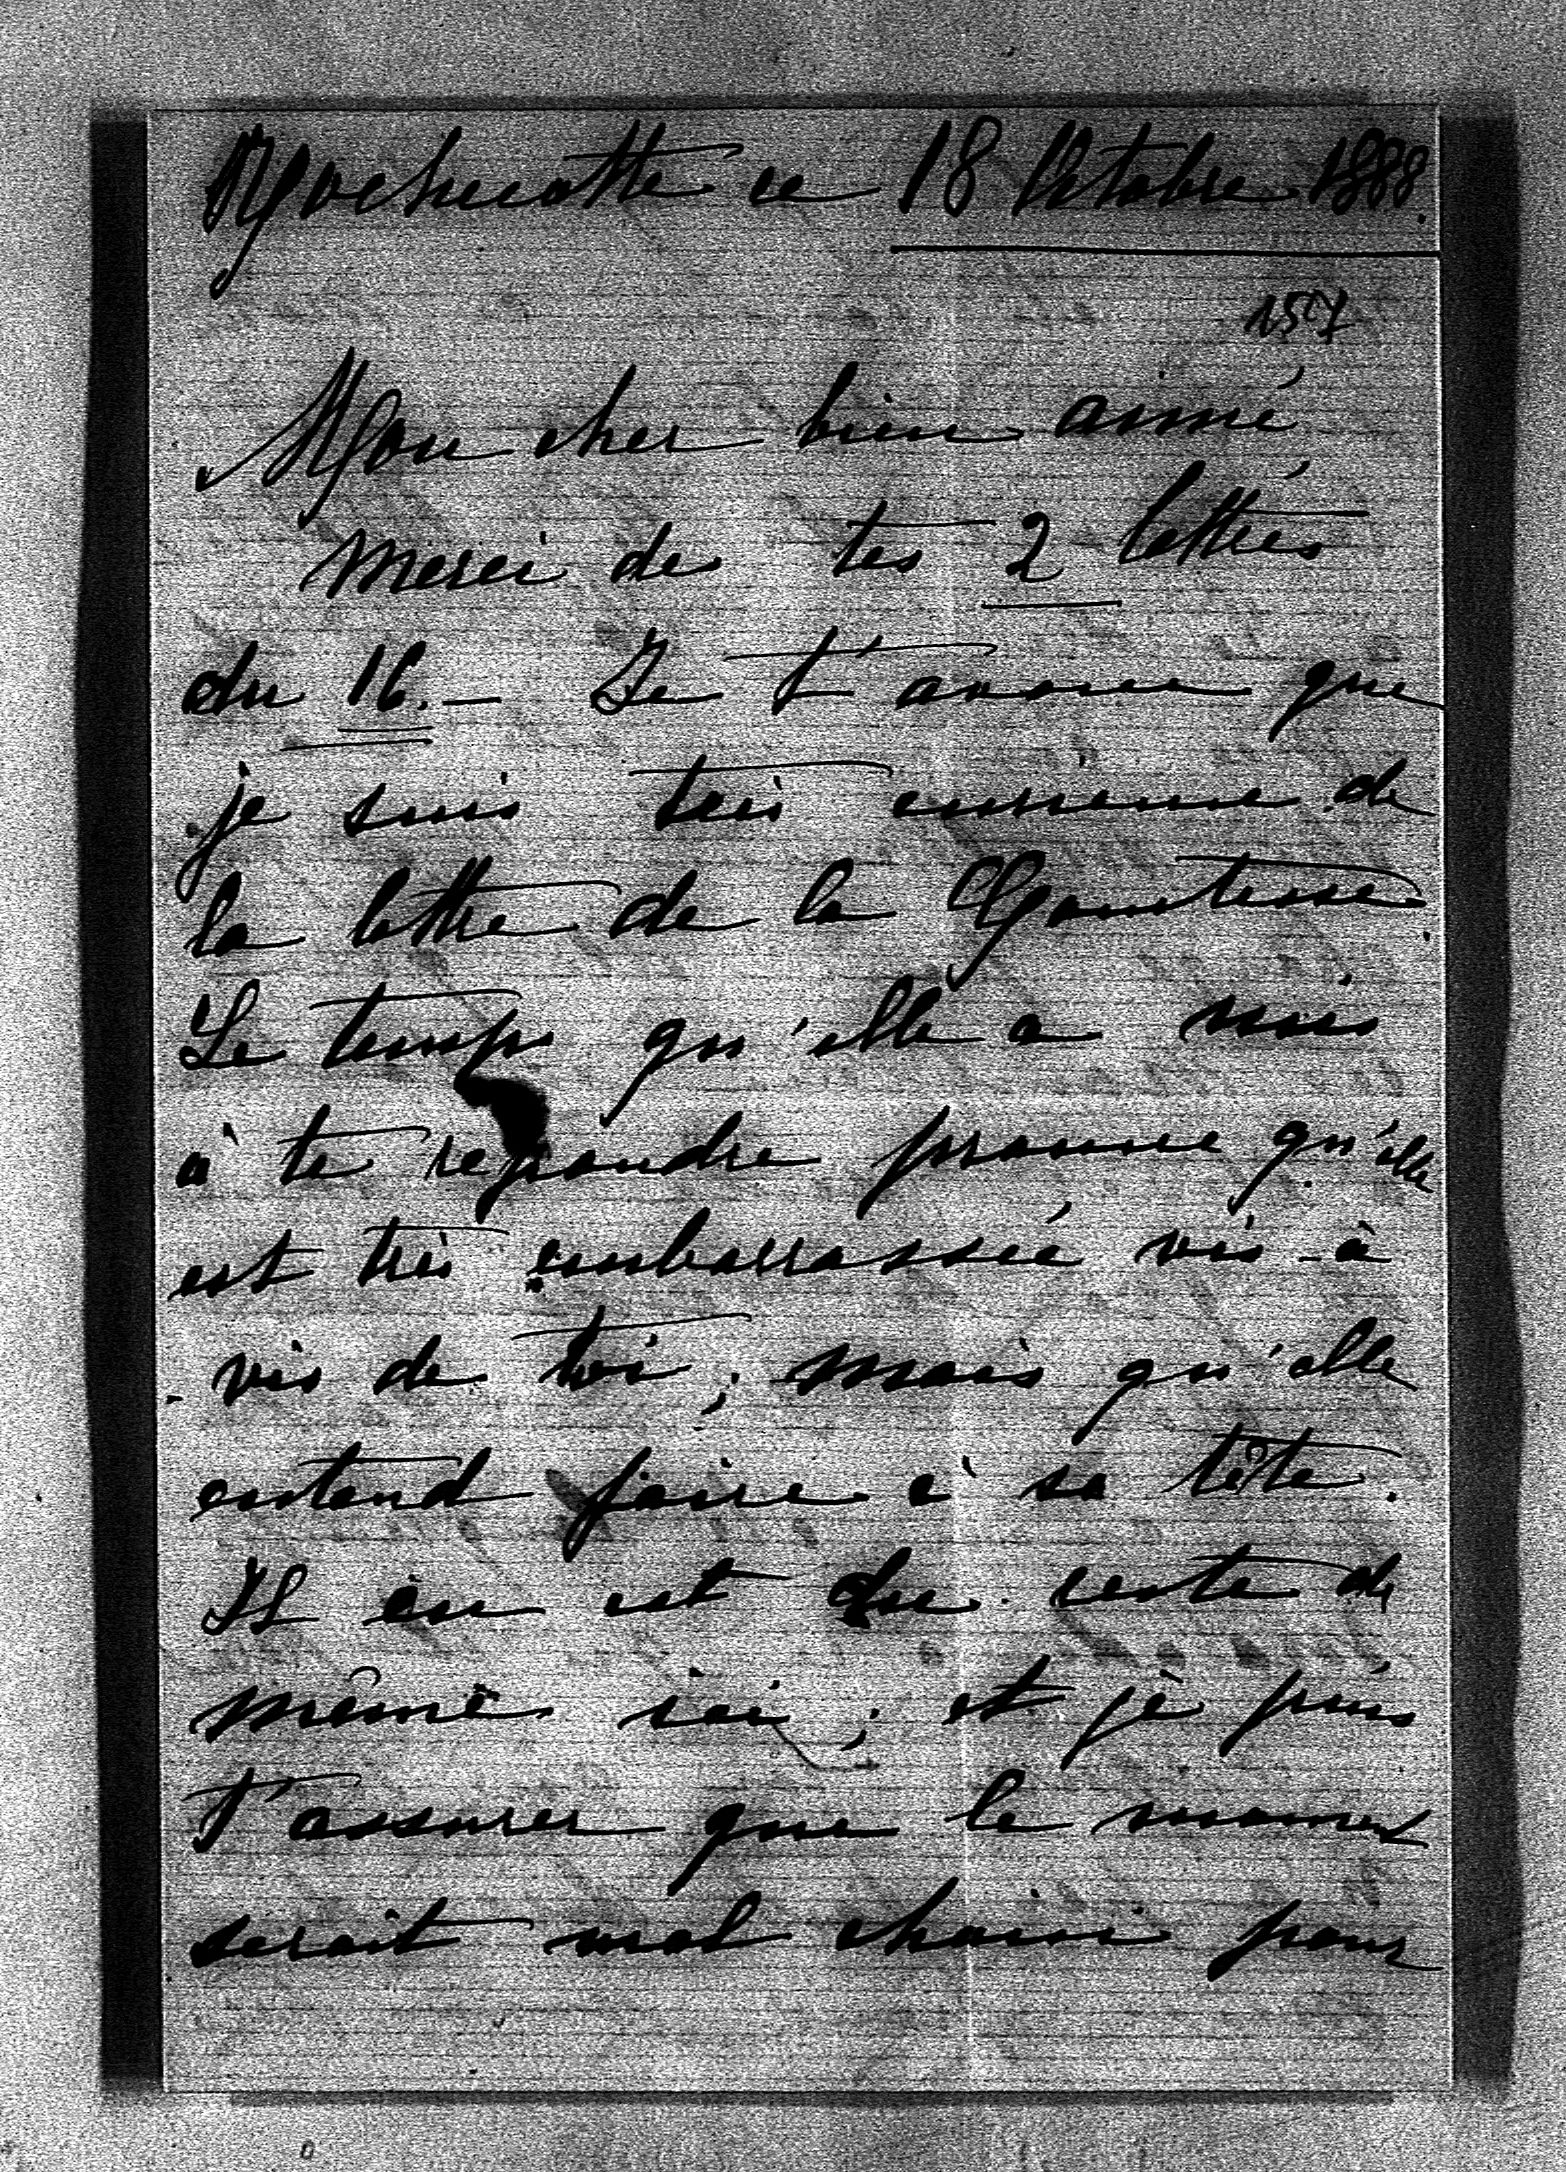 Rochecotte ce 18 Octobre 1888.
157
Mon cher bien aimé
Merci de tes 2 lettres
du 16. — Je t'avoue que
je suis très curieuse de
la lettre de la Comtesse.
Le temps qu'elle a mis
à te répondre prouve qu'elle
est très embarrassée vis-à
-vis de toi; mais qu'elle
entend faire à sa tête.
Il en est du reste de
même ici; et je puis
t'assurer que le moment
serait mal choisi pour